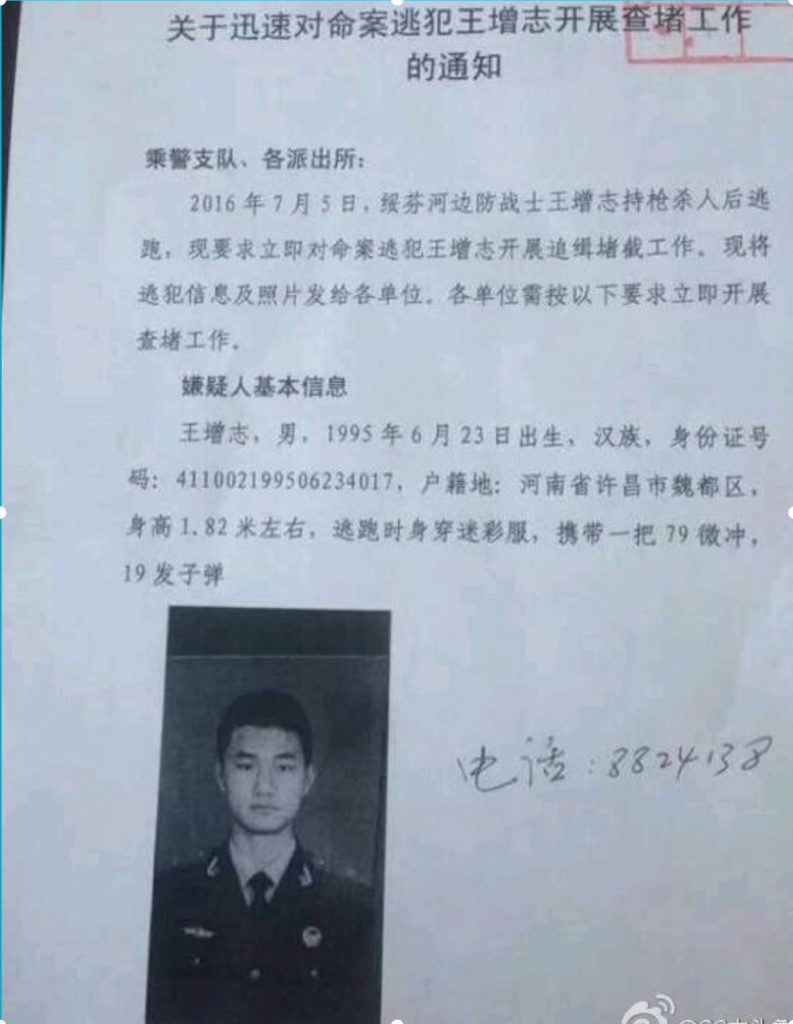 关于迅速对命案逃犯王增志开展查堵工作
的通知
乘警支队、各派出所:
2016年7月5日,绥芬河边防战士王增志持枪杀人后逃
跑,现要求立即对命案逃犯王增志开展追缉堵截工作。现将
逃犯信息及照片发给各单位。各单位需按以下要求立即开展
查堵工作。
嫌疑人基本信息
王增志,男,1995年6月23日出生,汉族,身份证号
码:411002199506234017,户籍地:河南省许昌市魏都区,
身高1.82米左右,逃跑时身穿迷彩服,携带一把79微冲,
19发子弹
电话:8824138